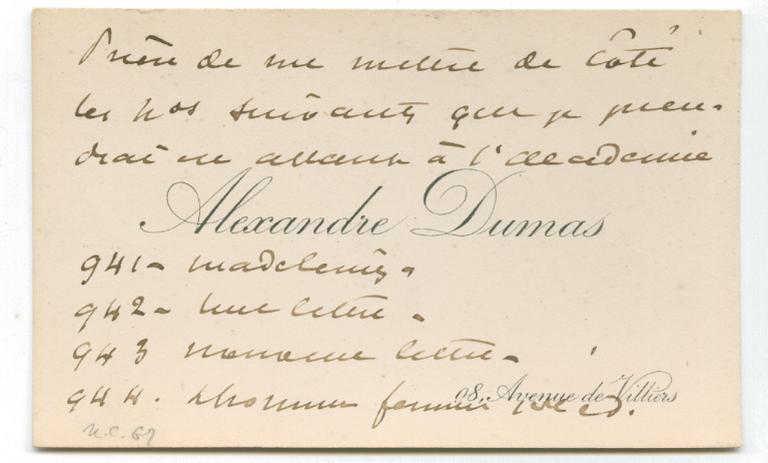 Prière de me mettre de côté
les nos suivants que je pren-
drai en allant à l'academie
Alexandre Dumas
941 - madeleine -
942 - une lettre -
943 nouvelle lettre -
944. L'homme femme
98, Avenue de Villiers
N.C. 67